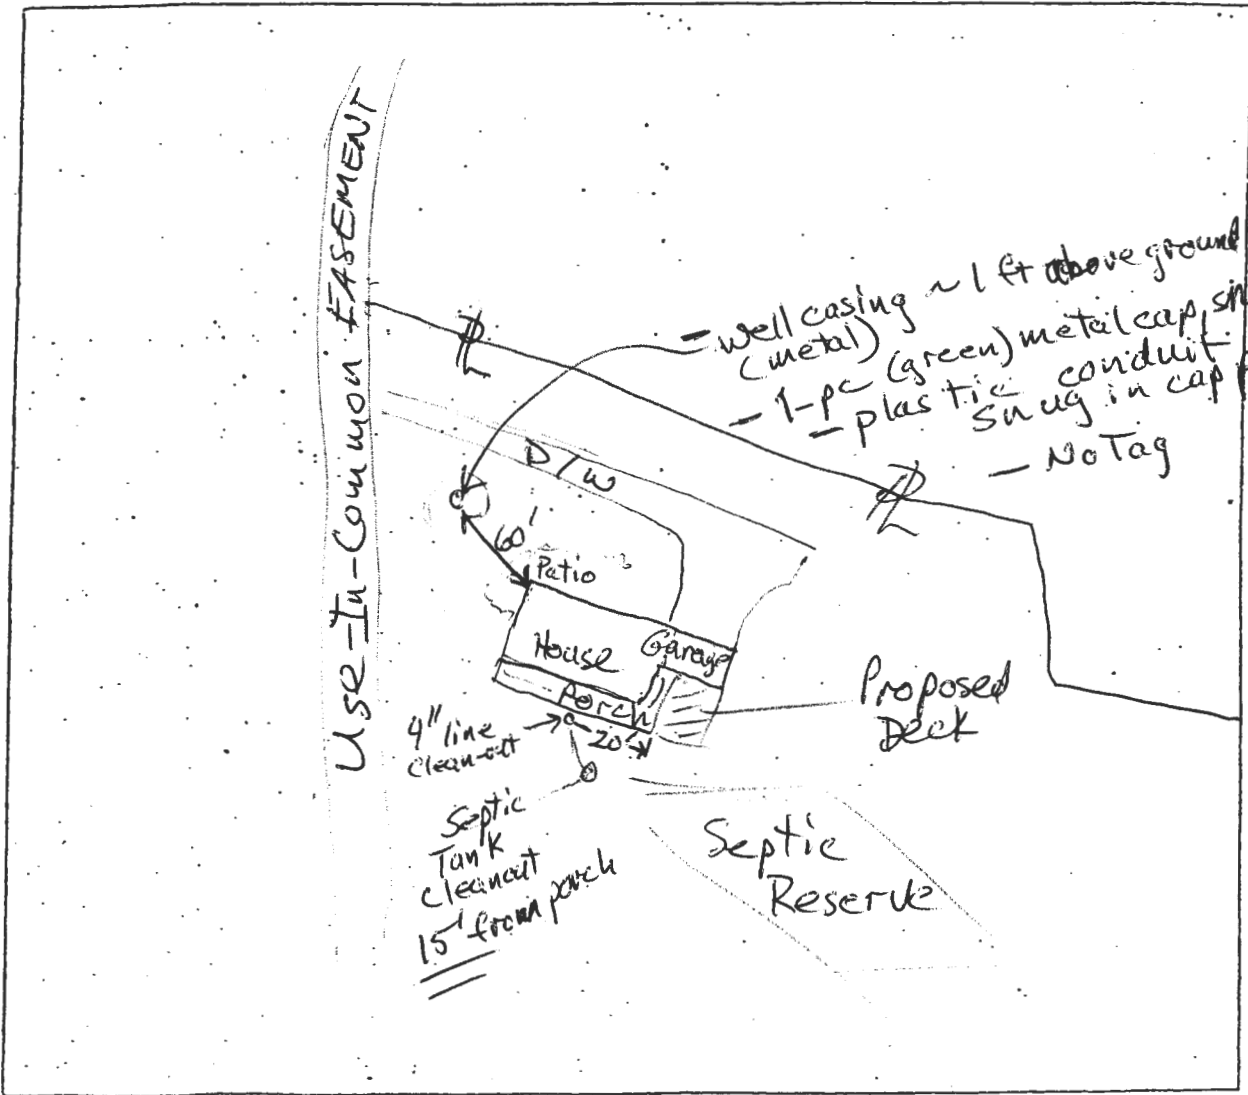 Use-In-Common EASEMENT
PL
- well casing ~ 1 ft above ground
(metal)
- 1-pc (green) metal cap,
- plastic conduit
snug in cap
- No Tag
PL
D/W
60'
Patio
House
Garage
Porch
Proposed
Deck
4" line
Clean-out
20'
Septic
Tank
Cleanout
15' from porch
Septic
Reserve